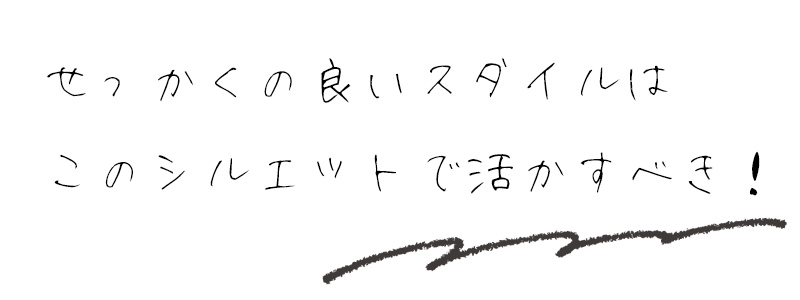 せっかくの良いスダイルは
このシルエットで活かすべき！